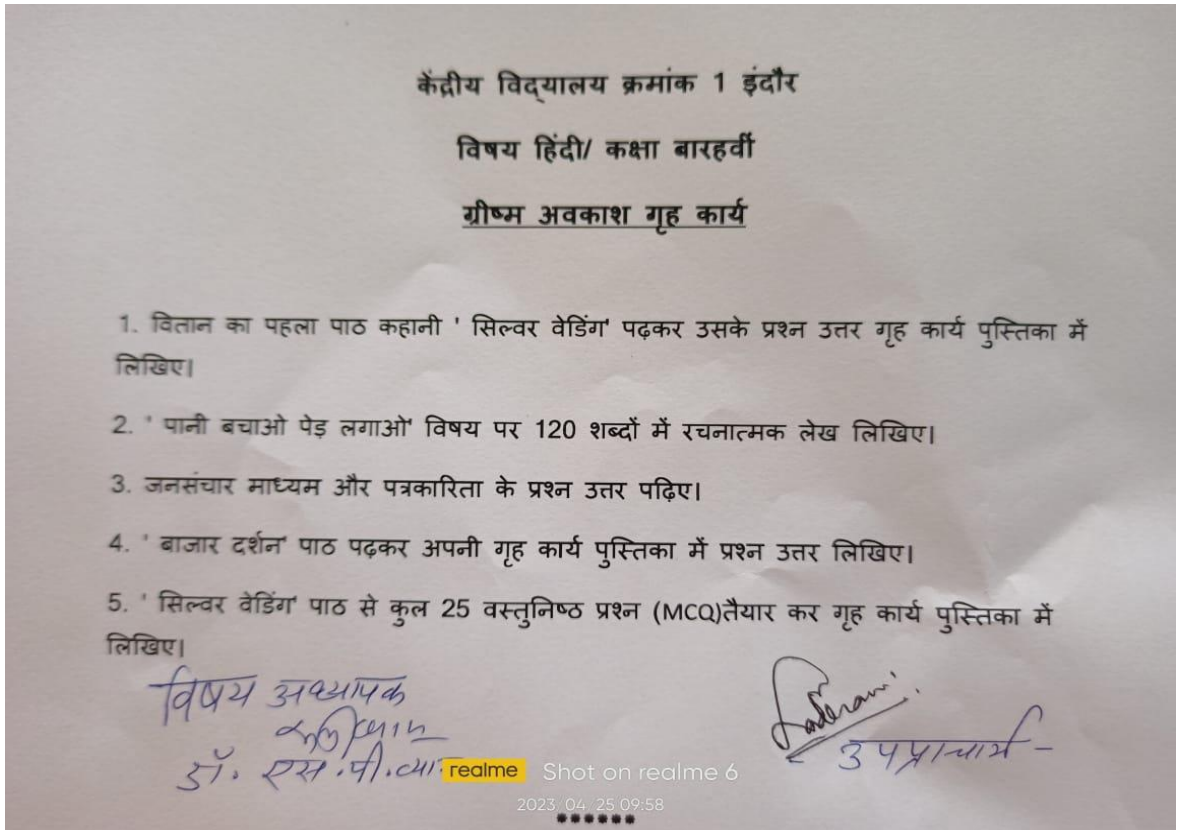 केंद्रीय विद्यालय क्रमांक 1 इंदौर
विषय हिंदी/ कक्षा बारहवीं
ग्रीष्म अवकाश गृह कार्य
1. वितान का पहला पाठ कहानी ' सिल्वर वेडिंग' पढ़कर उसके प्रश्न उत्तर गृह कार्य पुस्तिका में
लिखिए।
2. ' पानी बचाओ पेड़ लगाओ' विषय पर 120 शब्दों में रचनात्मक लेख लिखिए।
3. जनसंचार माध्यम और पत्रकारिता के प्रश्न उत्तर पढ़िए।
4. ' बाजार दर्शन' पाठ पढ़कर अपनी गृह कार्य पुस्तिका में प्रश्न उत्तर लिखिए।
5. ' सिल्वर वेडिंग' पाठ से कुल 25 वस्तुनिष्ठ प्रश्न (MCQ)तैयार कर गृह कार्य पुस्तिका में
लिखिए।
विषय अध्यापक
डॉ. एस.पी.
उपप्राचार्य -
realme Shot on realme 6
2023/04/25 09:58